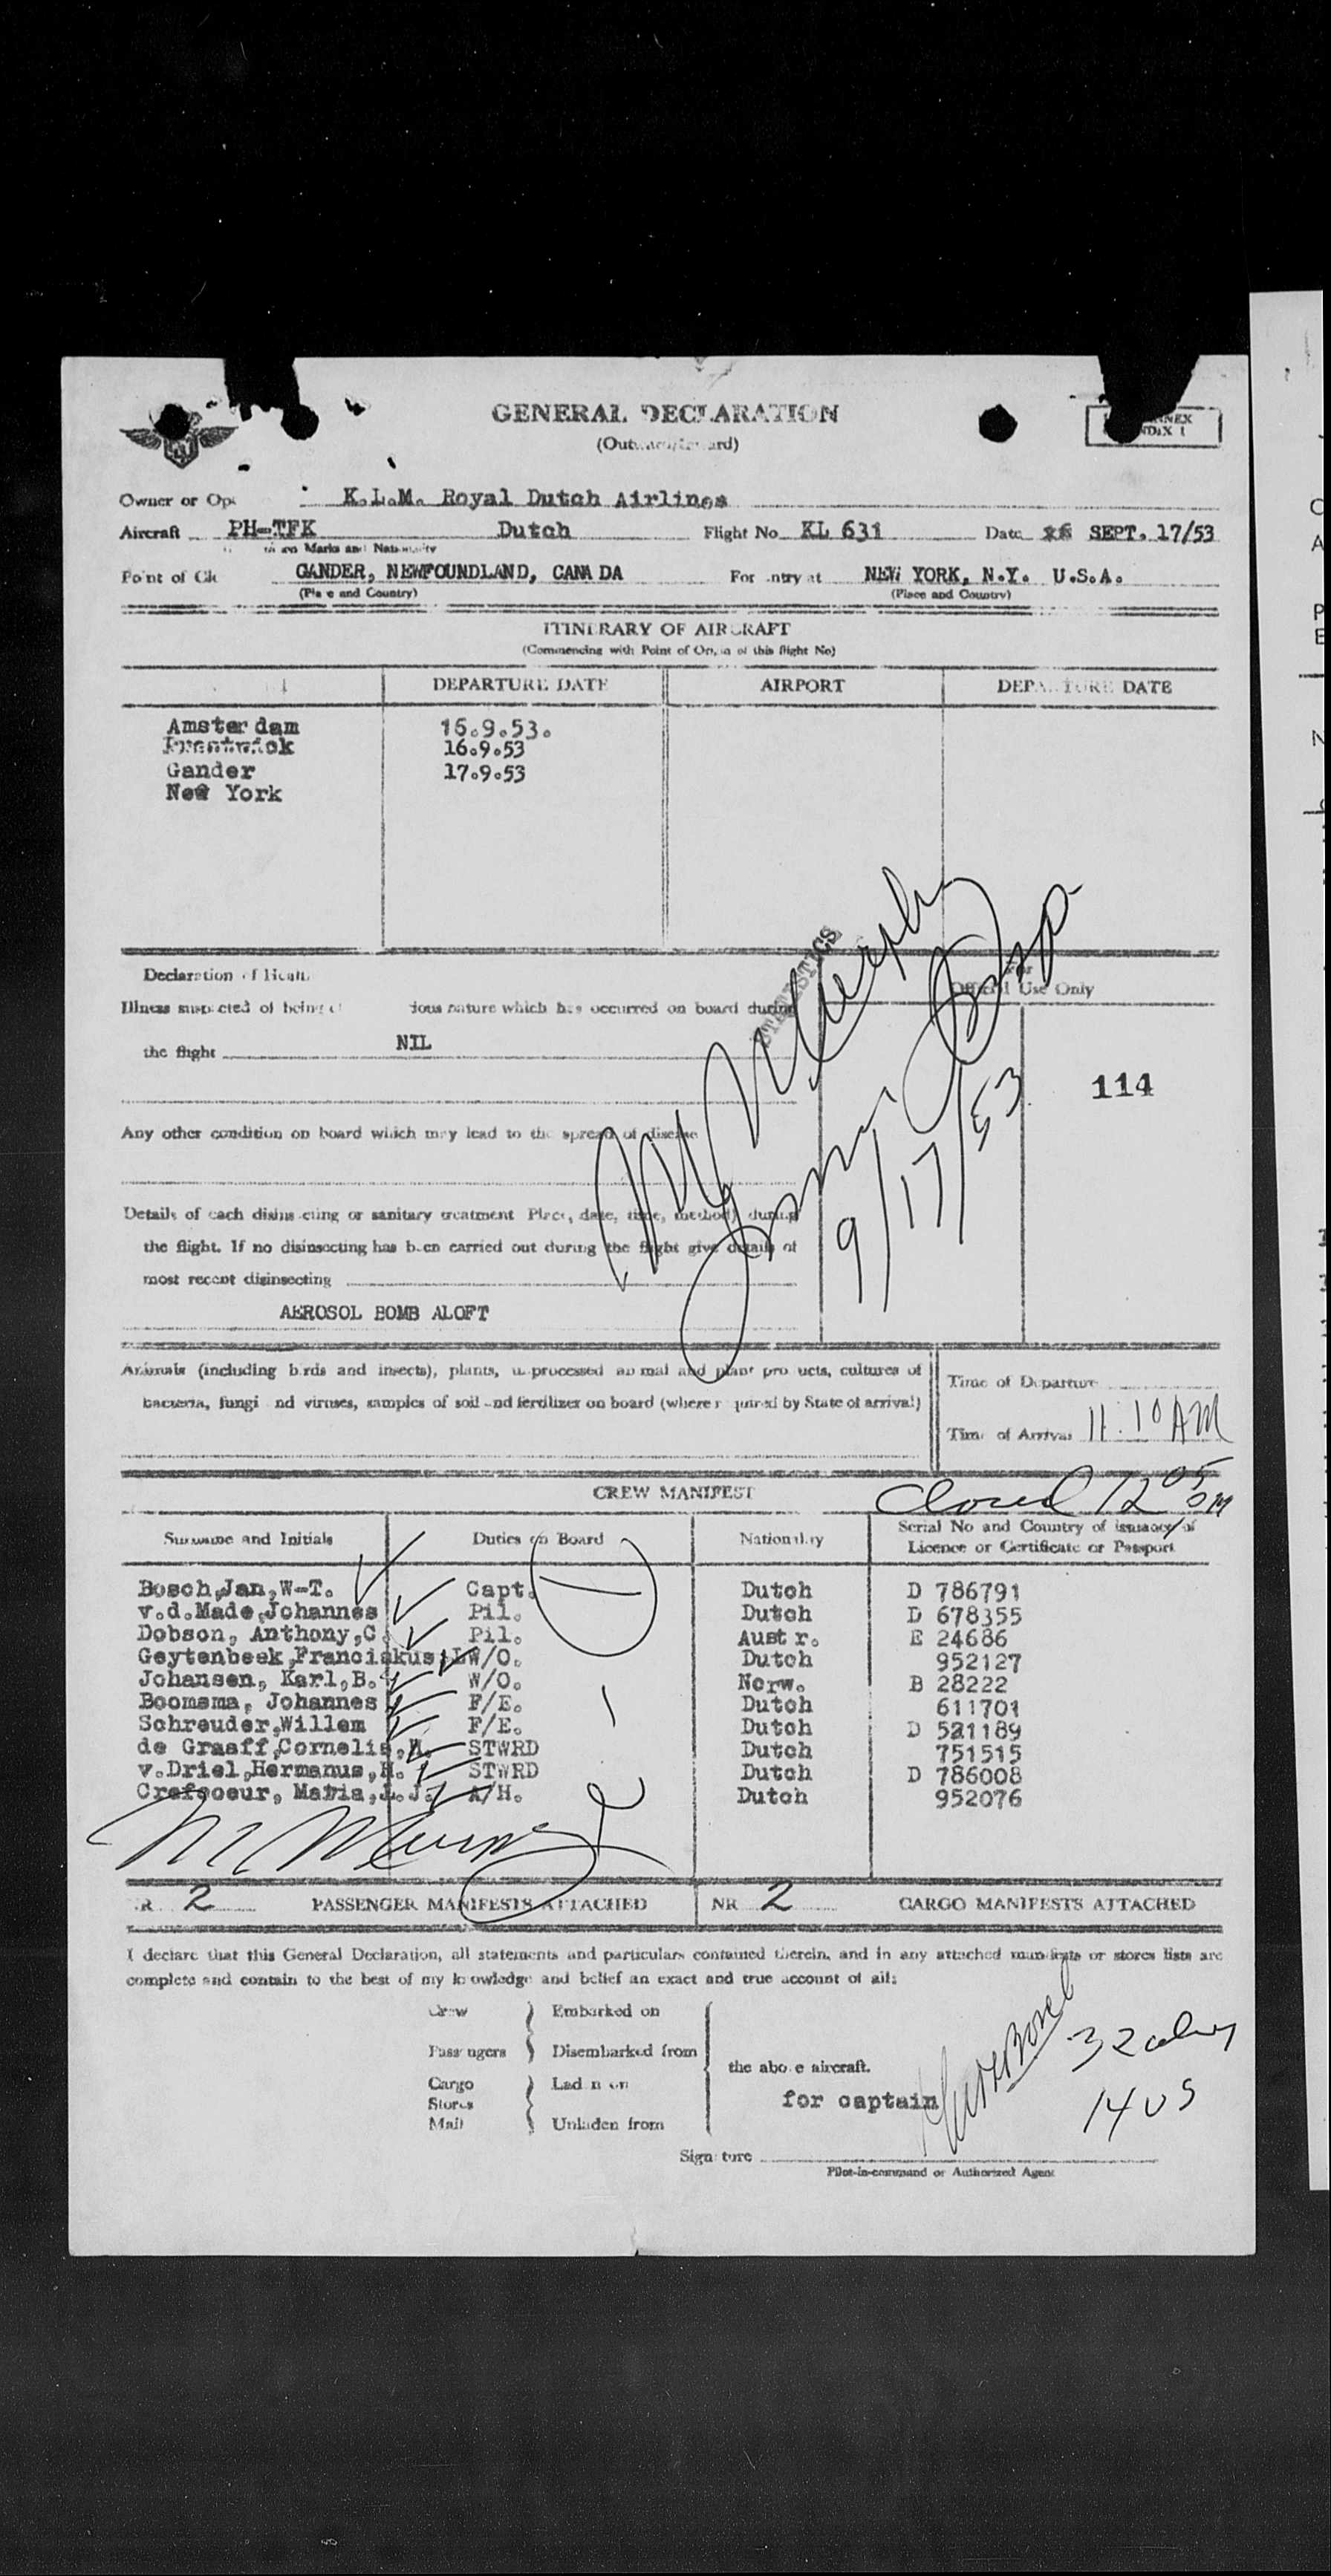 GENERAL DECLARATION
Owner or Op K.L.M. Royal Dutch Airlines
Aircraft PH-TFK Dutch Flight No KL 631 Date SEPT. 17/53
Marks and Nationality
Point of GANDER, NEWFOUNDLAND, CANADA For entry at NEW YORK, N.Y. U.S.A.
(Place and Country) (Place and Country)
ITINERARY OF AIRCRAFT
(Commencing with Point of Origin of this flight No)
DEPARTURE DATE AIRPORT DEPARTURE DATE
Amsterdam 16.9.53.
Prestwick 16.9.53
Gander 17.9.53
New York
Declaration of Health
For
Official Use Only
STATISTICS
Illness suspected of being ious nature which has occurred on board during
the flight NIL
114
Any other condition on board which may lead to the spread of disease
Details of each disinsecting or sanitary treatment Place, date, time, method) during
the flight. If no disinsecting has been carried out during the flight give details of
most recent disinsecting
AEROSOL BOMB ALOFT
9/17/53
Animals (including birds and insects), plants, unprocessed animal and plant products, cultures of
bacteria, fungi and viruses, samples of soil and fertilizer on board (where required by State of arrival)
Time of Departure
Time of Arrival 11:10 AM
CREW MANIFEST
Closed 12 05 PM
Surname and Initials Duties on Board Nationality Serial No and Country of issuance of
Licence or Certificate or Passport
Bosch,Jan,W-T. Capt. Dutch D 786791
v.d.Made,Johannes Pil. Dutch D 678355
Dobson, Anthony,C. Pil. Austr. E 24686
Geytenbeek,Franciskus,L W/O. Dutch 952127
Johansen, Karl,B. W/O. Norw. B 28222
Boomsma, Johannes F/E. Dutch 611701
Schreuder,Willem F/E. Dutch D 521189
de Graaff,Cornelis,A. STWRD Dutch 751515
v.Driel,Hermanus,H. STWRD Dutch D 786008
Crefcoeur, Maria,L.J. A/H. Dutch 952076
2 PASSENGER MANIFESTS ATTACHED NR 2 CARGO MANIFESTS ATTACHED
I declare that this General Declaration, all statements and particulars contained therein, and in any attached manifests or stores lists are
complete and contain to the best of my knowledge and belief an exact and true account of all:
Crew Embarked on
Passengers Disembarked from
the above aircraft.
Cargo Laden on
Stores
for captain
Mail Unladen from
32
14 US
Signature
Pilot-in-command or Authorized Agent